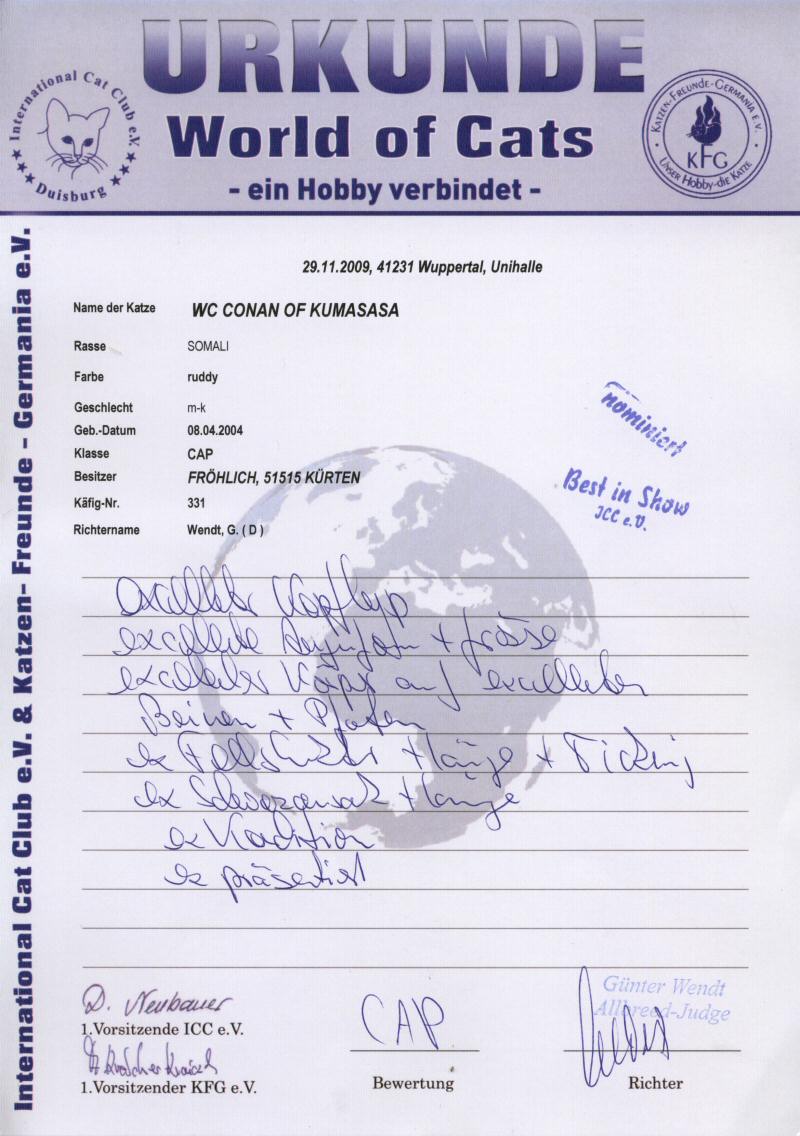 URKUNDE
World of Cats
- ein Hobby verbindet -
International Cat Club e.V.
Duisburg
KATZEN-FREUNDE-GERMANIA E.V.
KFG
UNSER HOBBY-DIE KATZE
International Cat Club e.V. & Katzen- Freunde - Germania e.V.
29.11.2009, 41231 Wuppertal, Unihalle
Name der Katze WC CONAN OF KUMASASA
Rasse SOMALI
Farbe ruddy
Geschlecht m-k
Geb.-Datum 08.04.2004
Klasse CAP
Besitzer FRÖHLICH, 51515 KÜRTEN
Käfig-Nr. 331
Richtername Wendt, G. ( D )
nominiert
Best in Show
ICC e.V.
excellenter Kopftyp
excellente Augenform + grösse
excellenter Körper auf excellenten
Beinen + Pfoten
ex Fellstruktur + länge + Ticking
ex Schwanzansatz + länge
ex Kondition
ex präsentiert
D. Neubauer
1.Vorsitzende ICC e.V.
1.Vorsitzender KFG e.V.
CAP
Bewertung
Günter Wendt
Allbreed-Judge
Richter